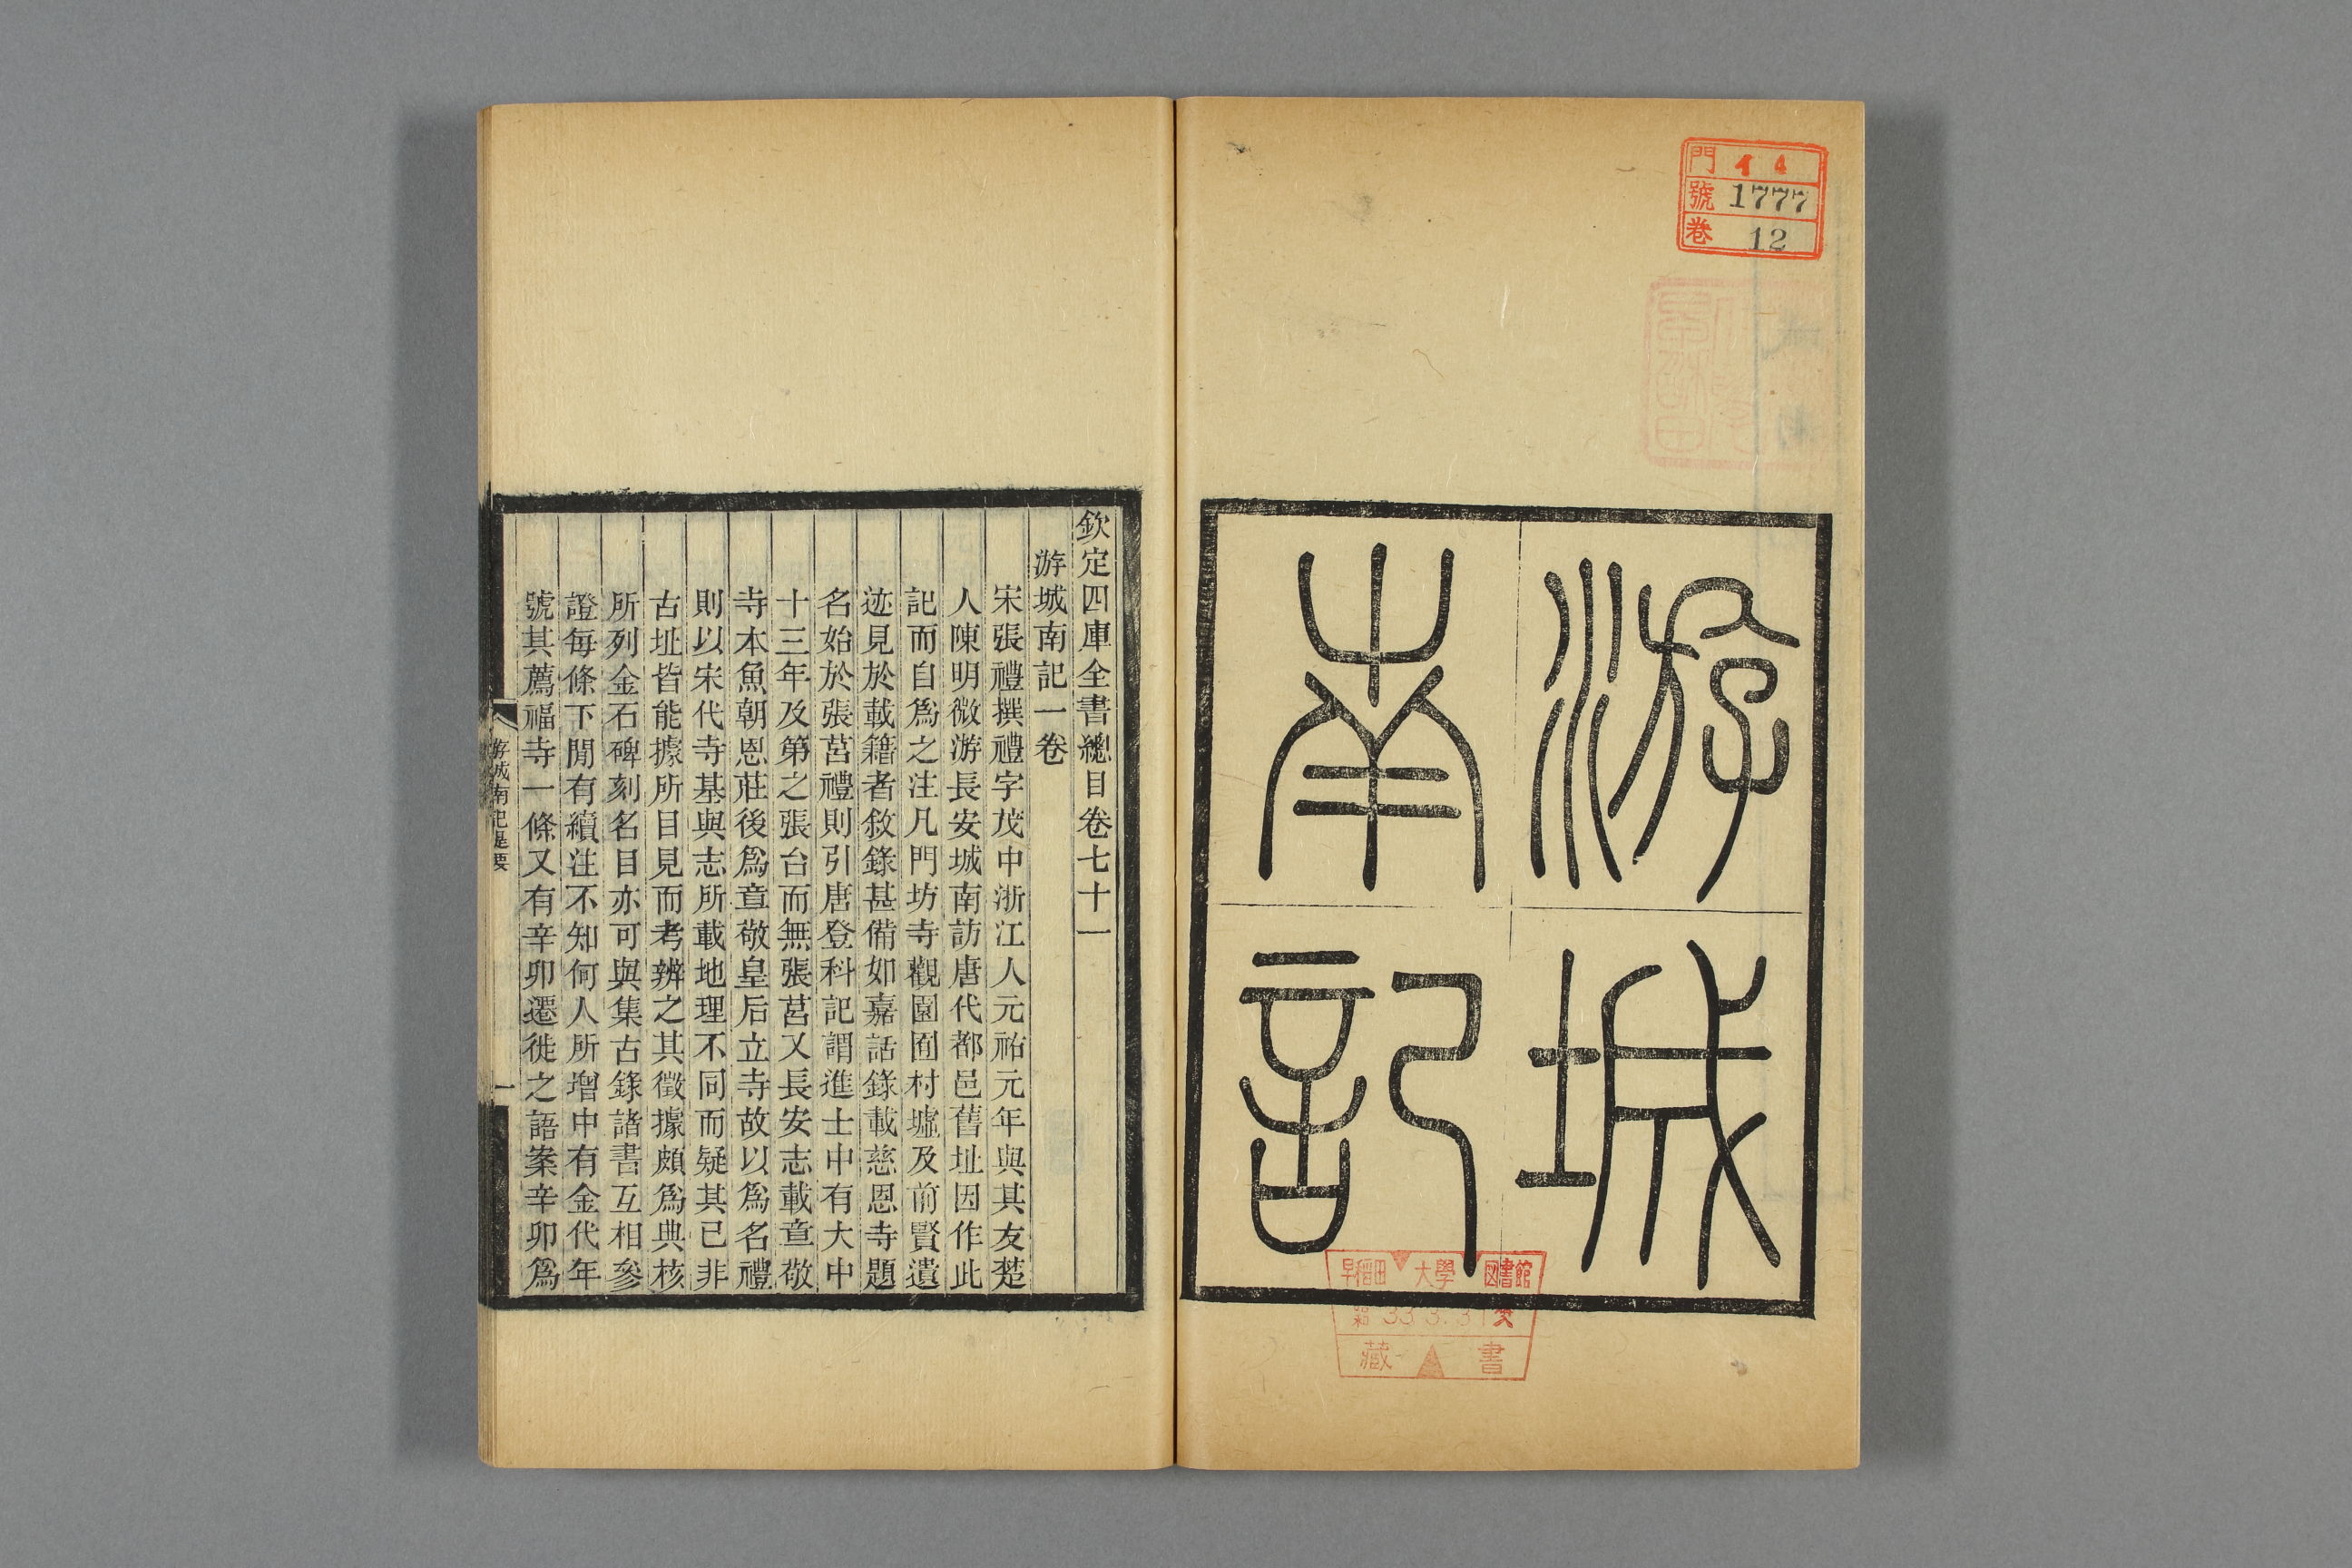 門 イ 4
號 1777
卷 12
游城
南記
早稻田大學圖書館
藏書
欽定四庫全書總目卷七十一
游城南記一卷
宋張禮撰禮字茂中浙江人元祐元年與其友楚
人陳明微游長安城南訪唐代都邑舊址因作此
記而自爲之注凡門坊寺觀園囿村墟及前賢遺
迹見於載籍者敘錄甚備如嘉話錄載慈恩寺題
名始於張莒禮則引唐登科記謂進士中有大中
十三年及第之張台而無張莒又長安志載章敬
寺本魚朝恩莊後爲章敬皇后立寺故以爲名禮
則以宋代寺基與志所載地理不同而疑其已非
古址皆能據所目見而考辨之其徵據頗爲典核
所列金石碑刻名目亦可與集古錄諸書互相參
證每條下閒有續注不知何人所增中有金代年
號其薦福寺一條又有辛卯遷徙之語案辛卯爲
游城南記提要
一